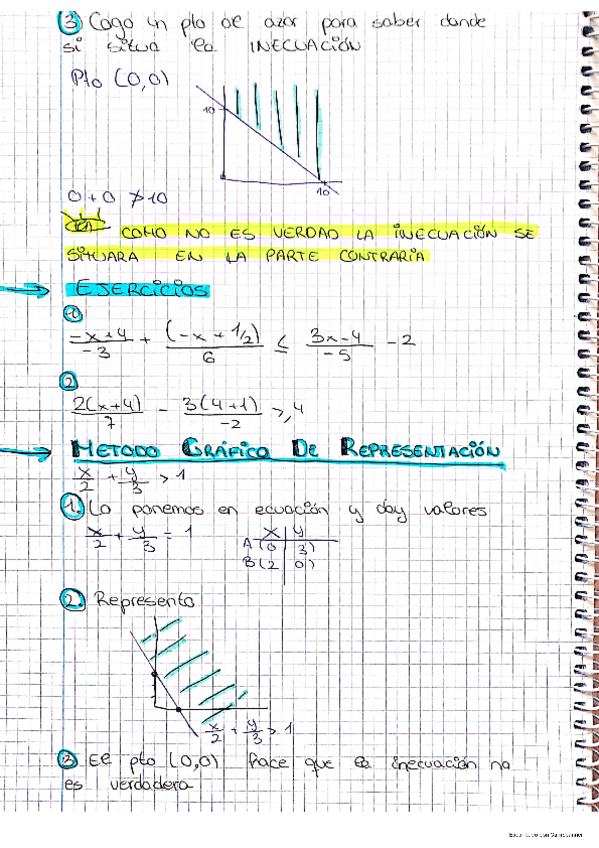 3 Cogo un pto de azar para saber donde
si situa la INECUACIÓN
Pto (0,0)
10
10
0 + 0 ≯ 10
COMO NO ES VERDAD LA INECUACIÓN SE
SITUARA EN LA PARTE CONTRARIA
EJERCICIOS
1
(-x+4)/-3 + (-x + 1/2)/6 ≤ (3x-4)/-5 - 2
2
2(x+4)/7 - 3(4+1)/-2 ≥ 4
METODO GRÁFICO DE REPRESENTACIÓN
x/2 + y/3 > 1
1. Lo ponemos en ecuación y doy valores
x/2 + y/3 = 1
x y
A (0 3)
B (2 0)
2. Represento
x/2 + y/3 > 1
3 El pto (0,0) hace que la inecuación no
es verdadera